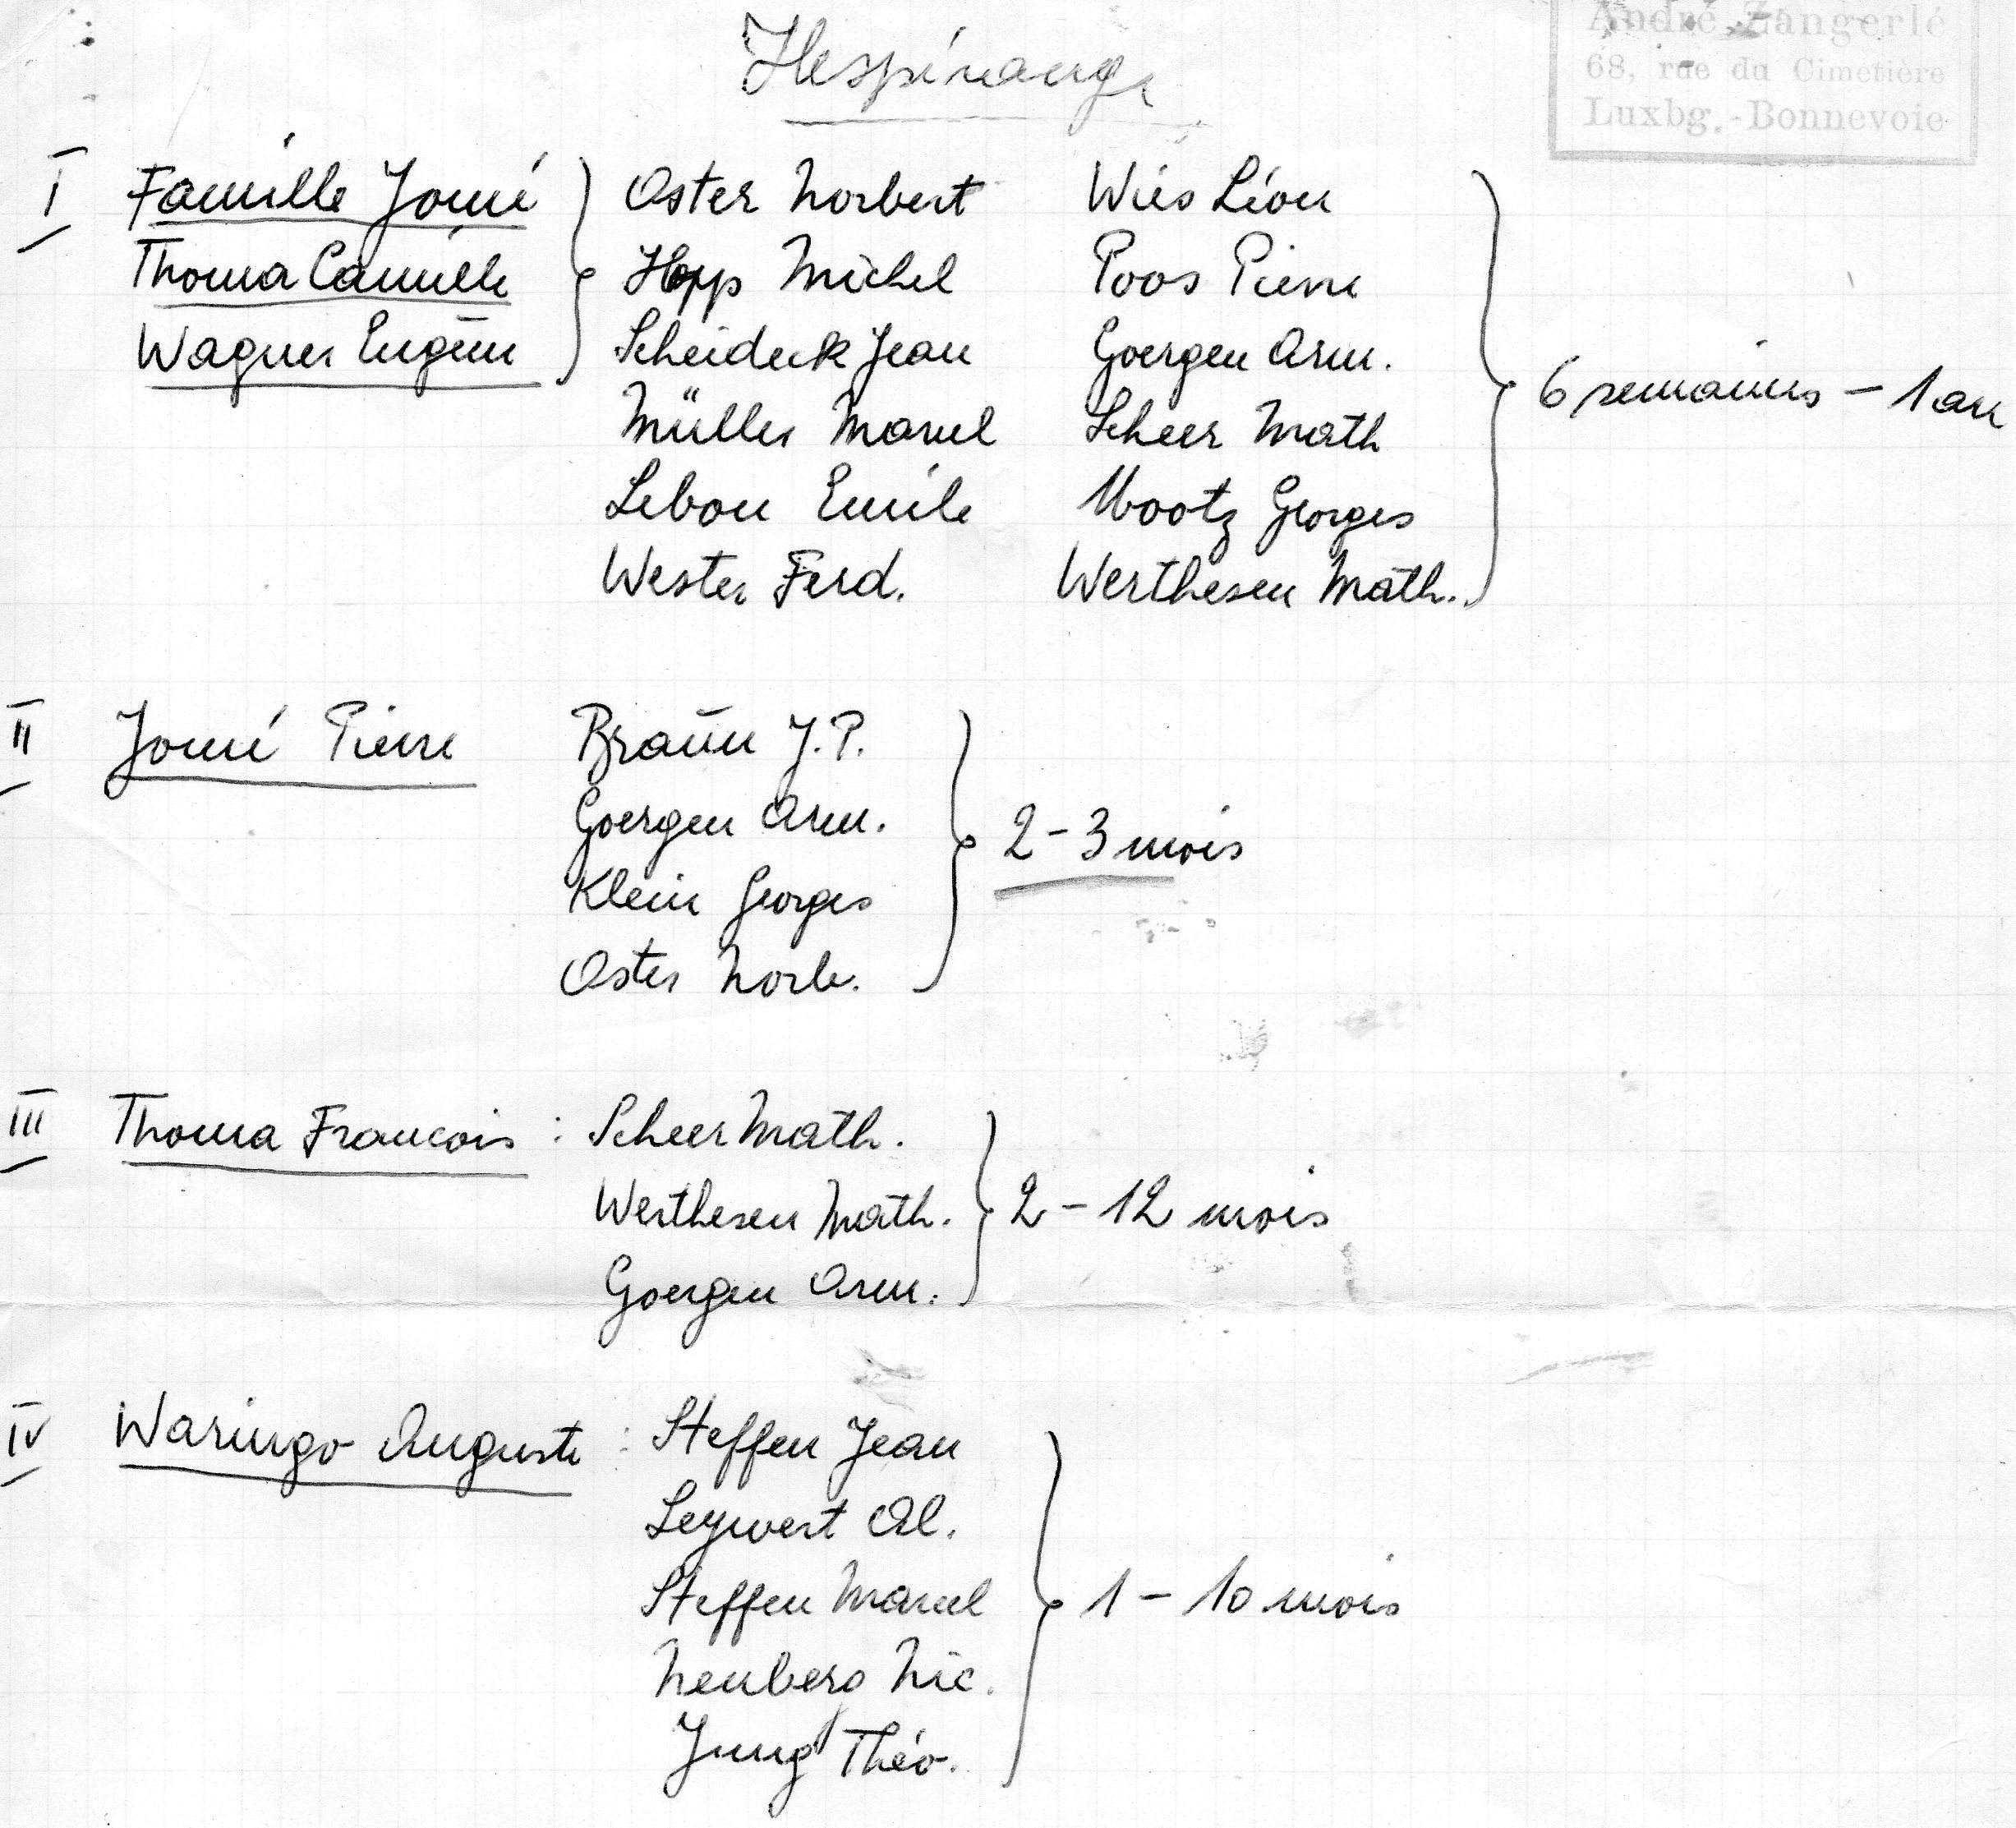 Hespérange
André Zangerlé
68, rue du Cimetière
Luxbg.-Bonnevoie
I Famille Jomé } Oster Norbert Wies Léon
Thoma Camille } Hopp Michel Poos Pierre
Wagner Eugène } Scheideck Jean Goergen Arm.
Müller Marcel Scheer Math } 6 semaines – 1 an
Lebon Emile Mootz Georges
Wester Ferd. Werthesen Math.
II Jomé Pierre Braun J.P.
Goergen Arm. } 2-3 mois
Klein Georges
Oster Norb.
III Thoma Francois : Scheer Math.
Werthesen Math. } 2-12 mois
Goergen Arm.
IV Waringo Auguste : Steffen Jean
Leywert Al.
Steffen Marcel } 1 - 10 mois
Neuberg Nic.
Jung Théo.